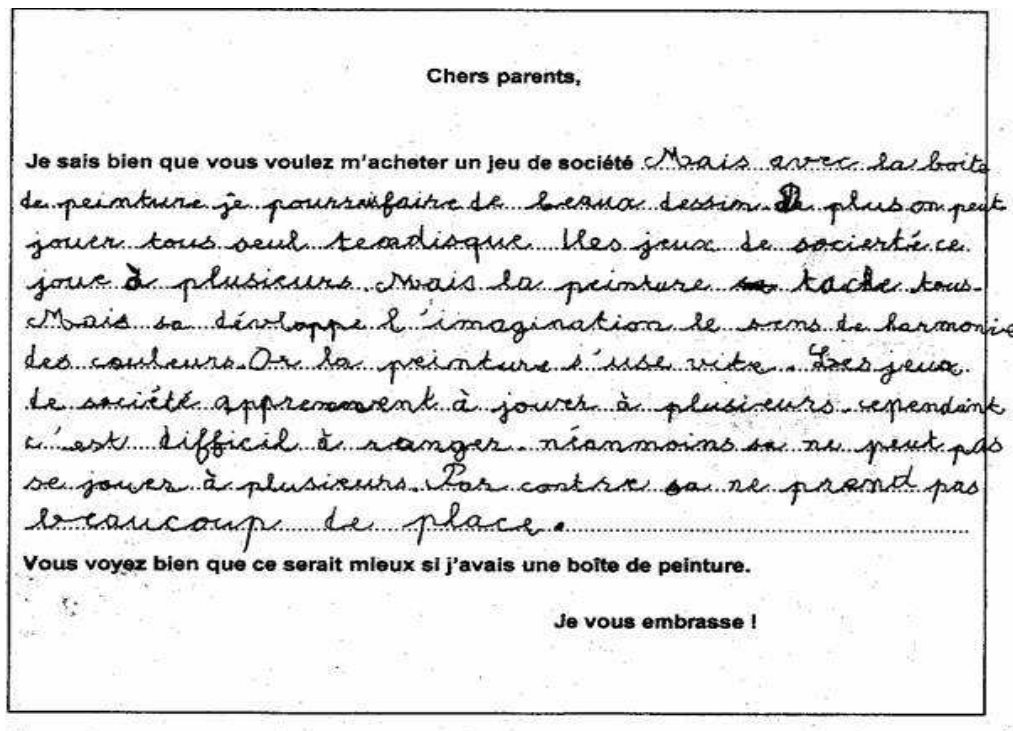 Chers parents,
Je sais bien que vous voulez m'acheter un jeu de société Mais avec la boite
de peinture je pourrai faire de beaux dessin De plus on peut
jouer tous seul temdisque lles jeux de socierté ce
joue à plusieurs. Mais la peinture sa tache tous.
Mais sa dévloppe l'imagination le sens de harmonie
des couleurs. Or la peinture s'use vite. Les jeux
de société apprennent à jouer à plusieurs. cependant
c'est difficil à ranger néanmoins sa ne peut pas
se jouer à plusieurs. Par contre sa ne prend pas
beaucoup de place.
Vous voyez bien que ce serait mieux si j'avais une boîte de peinture.
Je vous embrasse !